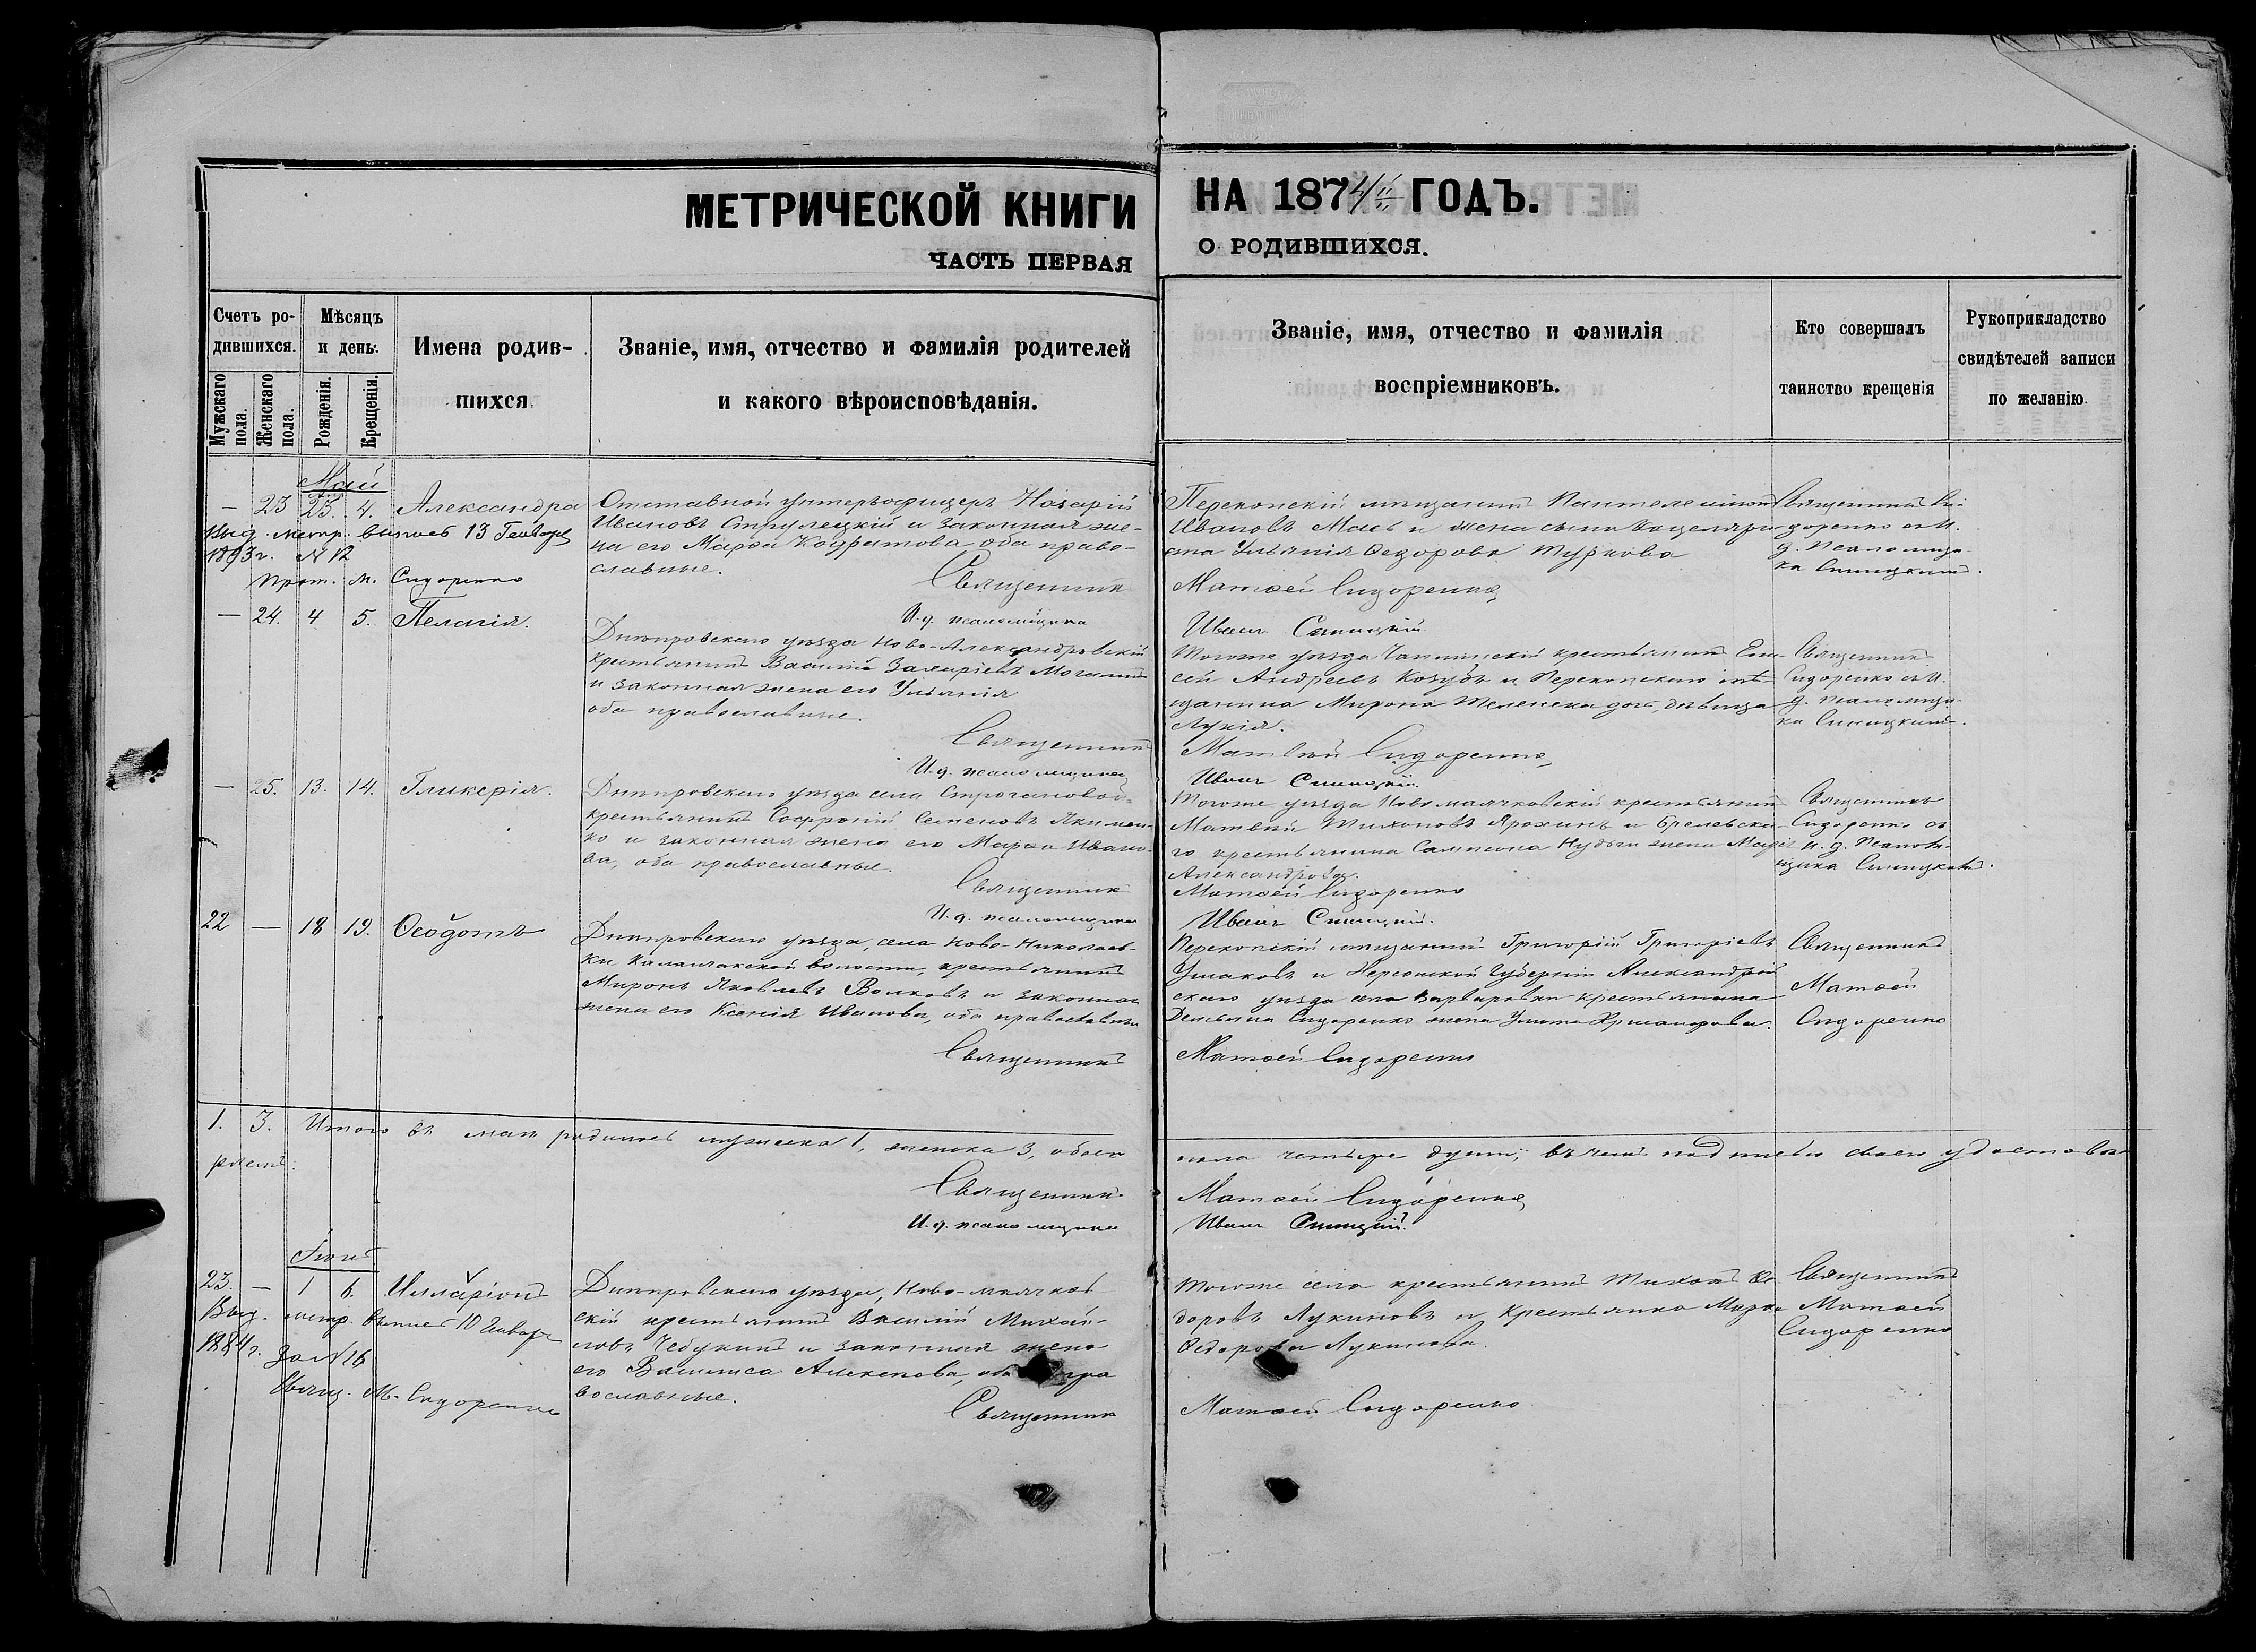 МЕТРИЧЕСКОЙ КНИГИ
ЧАСТЬ ПЕРВАЯ
НА 1874 ГОДЪ.
О РОДИВШИХСЯ.
Счетъ ро-
дившихся.
Мужскаго пола.
Женскаго пола.
Мѣсяцъ
и день.
Рожденія.
Крещенія.
Имена родив-
шихся
Званіе, имя, отчество и фамилія родителей
и какого вѣроисповѣданія.
Званіе, имя, отчество и фамилія
воспріемниковъ.
Кто совершалъ
таинство крещенія
Рукоприкладство
свидѣтелей записи
по желанію.
Май
— 23 23. 4. Александра
Выд. метр. выпись 13 Генваря
1893 г. № 12
Прот. М. Сидоренко
Отставной унтеръ-офицеръ Назарій
Ивановъ Струлецкій и законная же-
на его Марѳа Кондратова оба право-
славные.
Священник
И. д. псаломщика
Перекопскій мещанин Пантелеимон
Ивановъ Маевъ и жена сына канцеляри
ста Ульянія Ѳедорова Туркова
Матѳей Сидоренко
Иван Синицкій
Священник Си-
доренко съ И.
д. псаломщи-
ка Синицкимъ.
— 24. 4 5. Пелагія.
Днѣпровскаго уѣзда Ново-Александровскій
крестьянинъ Василій Захаріевъ
и законная жена его Ульянія
оба православные.
Священникъ
И. д. псаломщика
Тогоже уѣзда Чаплинскій крестьянинъ Ели-
сей Андреевъ Козубъ и Перекопскаго мѣ-
щанина Мирона дочь, дѣвица
Лукія.
Матвей Сидоренко
Иван Синицкій
Священник
Сидоренко съ И.
д. псаломщи-
ка Синицкимъ.
— 25. 13. 14. Гликерія.
Днѣпровскаго уѣзда села Строгановой
крестьянинъ Софроній Семеновъ Якимен-
ко и законная жена его Марѳа Ивано-
ва, оба православные.
Священник
И. д. псаломщика
Тогоже уѣзда Новомаячковскій крестьянинъ
Матвей Тихоновъ Ярохинъ и Брелевска-
го крестьянина Сампсона жена Марія
Александрова.
Матѳей Сидоренко
Иван Синицкій.
Священникъ
Сидоренко съ
И. д. псалом-
щика Синицкимъ.
22 — 18 19. Ѳеодотъ
Днѣпровскаго уѣзда, села Ново-Николаев-
ки Каланчакской волости, крестьянинъ
Миронъ Яковлевъ Волковъ и законная
жена его Ксенія Иванова, оба православные
Священникъ
Перекопскій мещанинъ Григорій Григоріевъ
Ушаковъ и Херсонской Губерніи Александрій
скаго уѣзда села Варваровки крестьянина
Демьяна Сидоренко жена Улита
Матѳей Сидоренко
Священникъ
Матѳей
Сидоренко
1. 3. Итого въ мае родилось мужеска 1, женска 3, обоего
пола четыре души, въ чемъ подписью своею удостовѣ-
ряемъ:
Священник
И. д. псаломщика
Матѳей Сидоренко
Иван Синицкій.
Іюнь
23. — 1 6. Илларіонъ
Выд. метр. выпись 10 Генваря
1884 г. За № 16
Свящ. М. Сидоренко
Днѣпровскаго уѣзда, Ново-маячков
скій крестьянинъ Василій Михай-
ловъ и законная жена
его Василиса Алексеева, оба пра
вославные.
Священник
Тогоже села крестьянинъ Тихонъ Ѳе
доровъ Лукиновъ и крестьянка Марѳа
Ѳедорова Лукинова.
Матѳей Сидоренко
Священникъ
Матѳей
Сидоренко